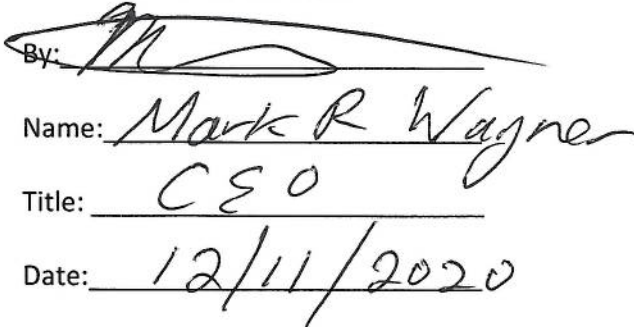 By:
Name: Mark R Wagner
Title: CEO
Date: 12/11/2020